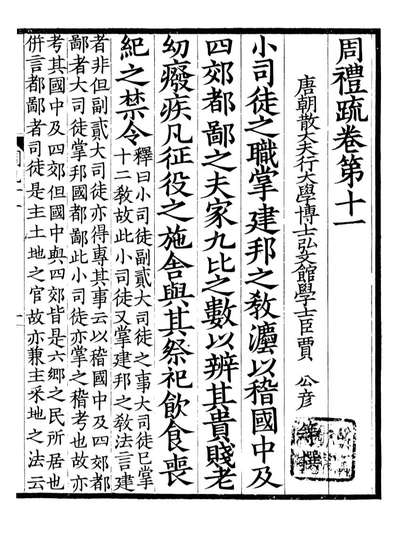 周禮疏卷第十一
唐朝散大夫行大學博士弘文館學士臣賈公彦等撰
小司徒之職掌建邦之敎灋以稽國中及
四郊都鄙之夫家九比之數以辨其貴賤老
幼癈疾凡征役之施舍與其祭祀飮食喪
紀之禁令
釋曰小司徒副貳大司徒之事大司徒已掌
十二敎故此小司徒又掌建邦之敎法言建
者非但副貳大司徒亦得專其事云以稽國中及四郊都
鄙者大司徒掌邦國都鄙此小司徒亦掌之稽考也故亦
考其國中及四郊但國中與四郊皆是六鄉之民所居也
倂言都鄙者司徒是主土地之官故亦兼主采地之法云